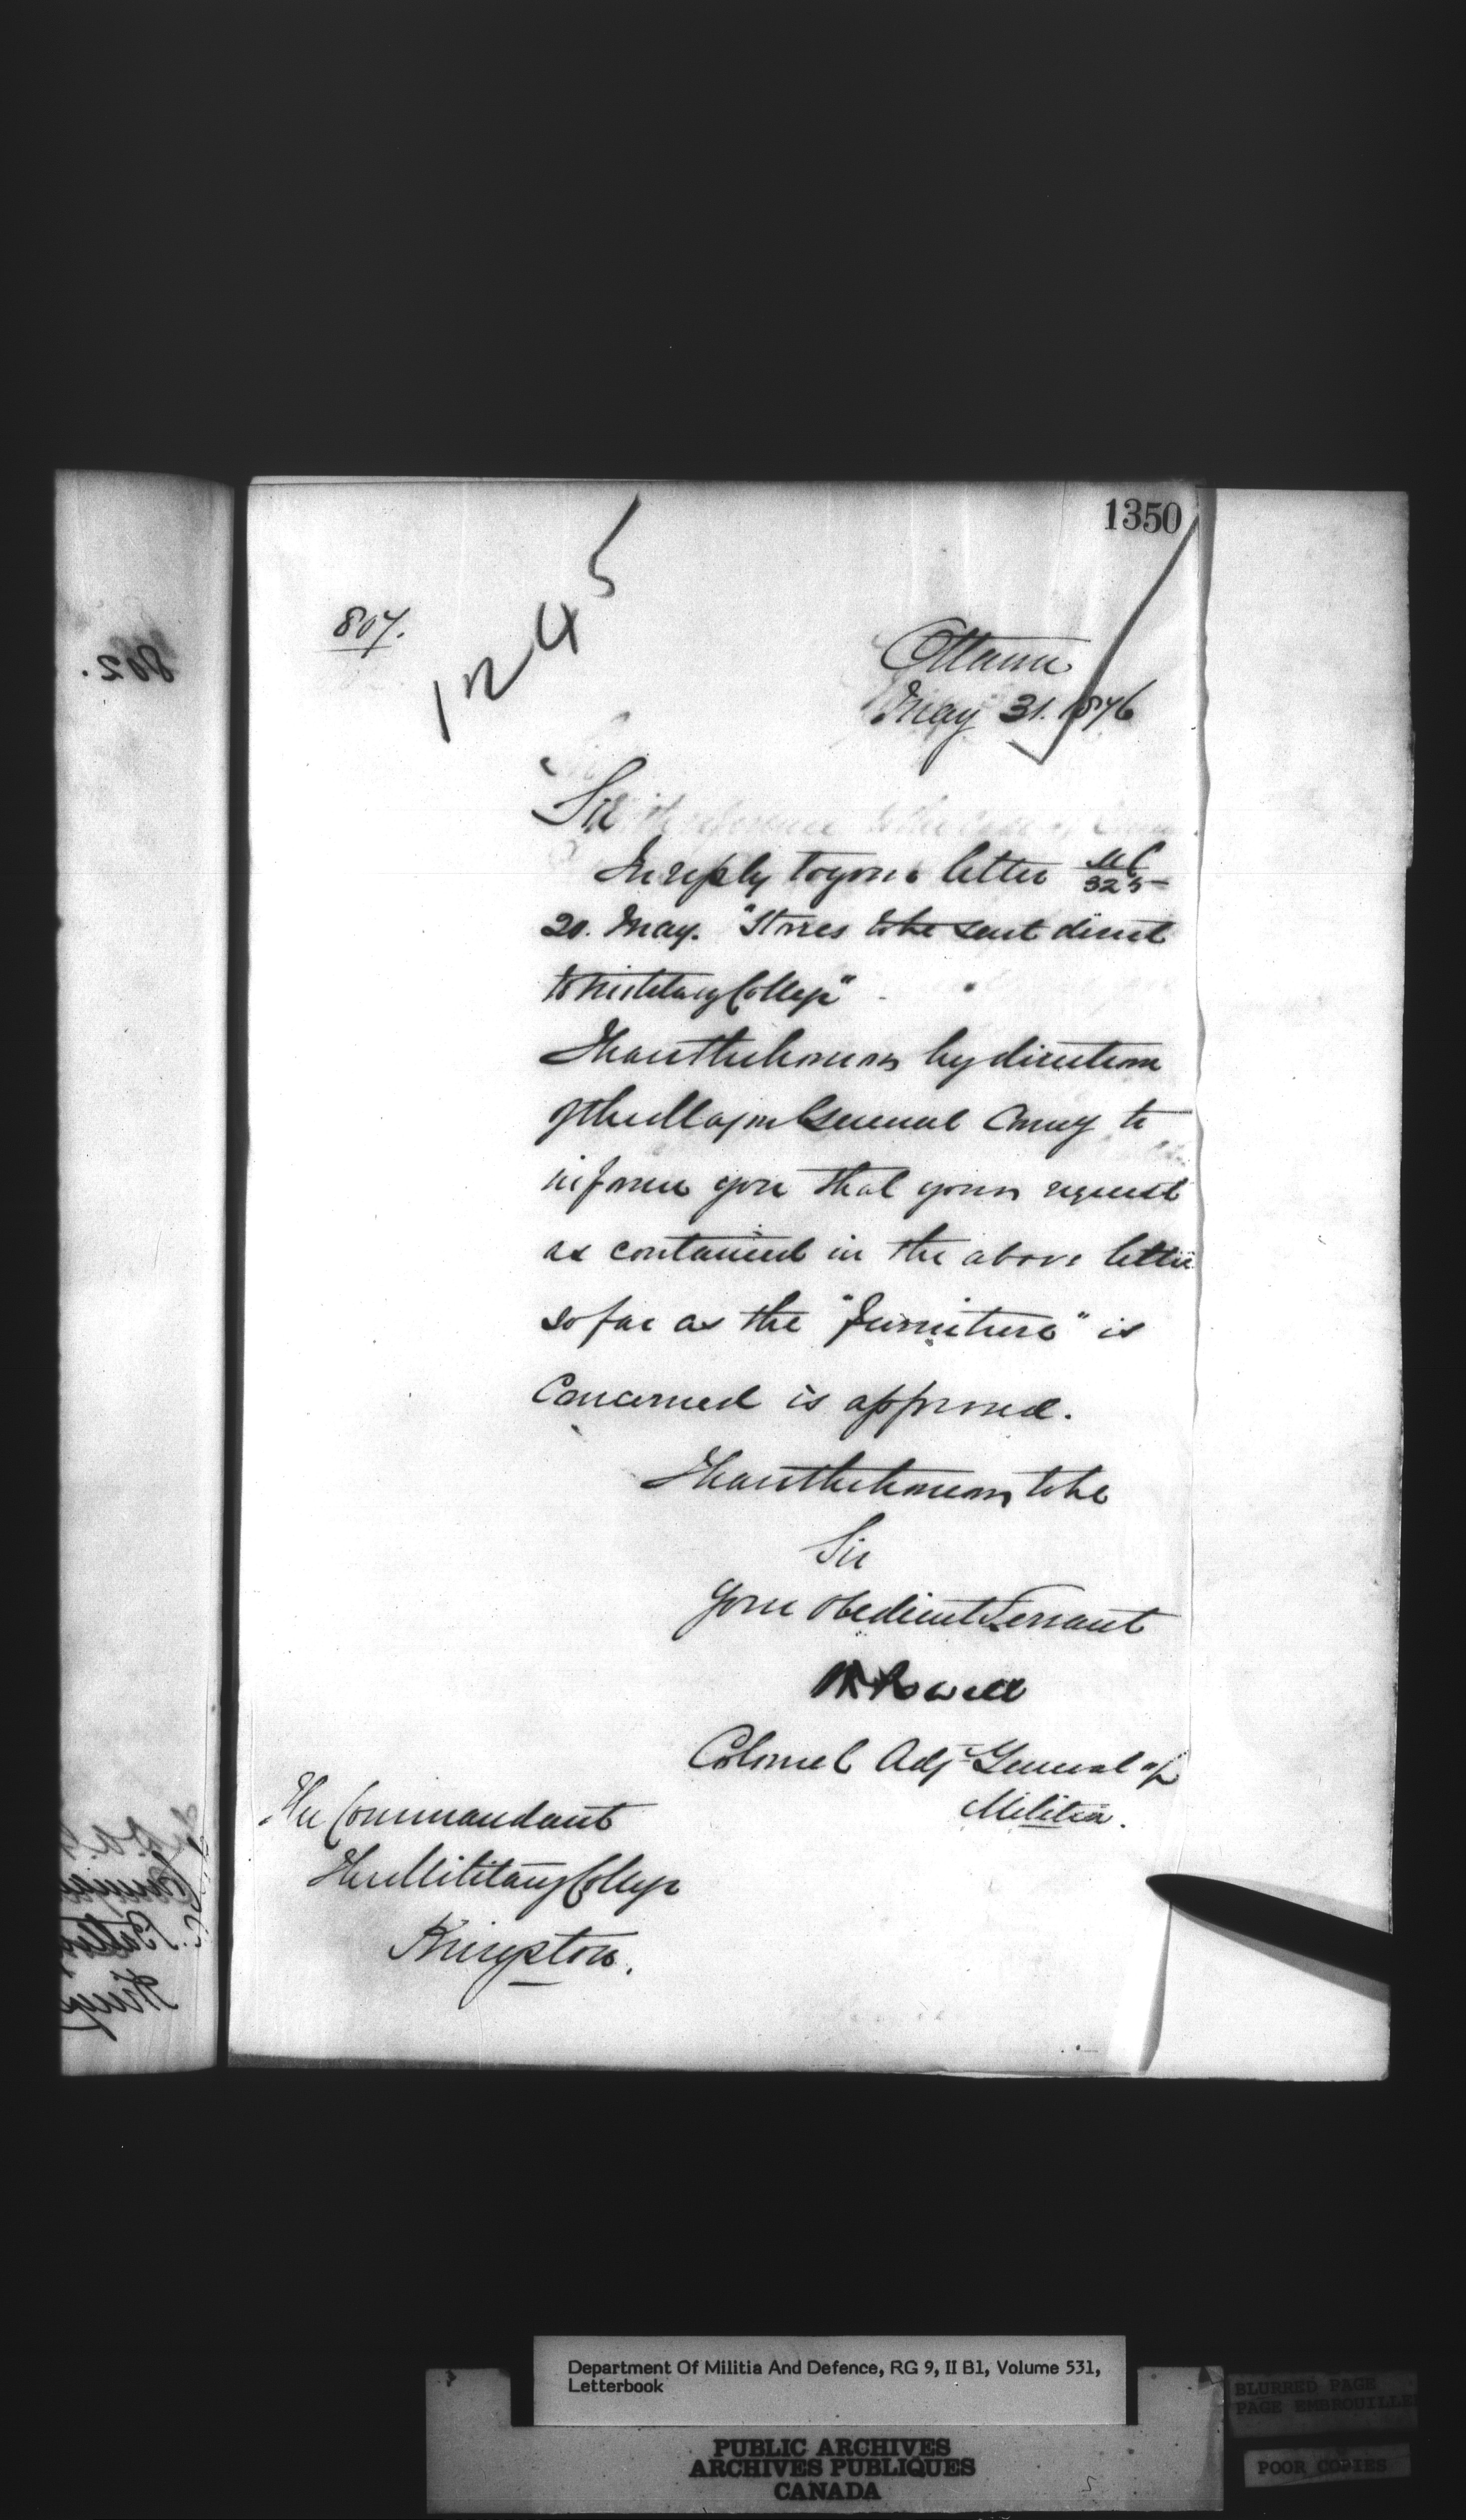 1350
807.
1245
Ottawa
May 31. 1876
Sir
In reply to your letter MC/325
20. May. "Stores to be sent direct
to Military College"
I have the honour by direction
of the Major General Comg to
inform you that your request
as contained in the above letter
so far as the "furniture" is
Concerned is approved.
I have the honour to be
Sir
Your obedient Servant
W Powell
Colonel Adjt General of
Militia.
The Commandant
The Military College
Kingston.
802.
Department Of Militia And Defence, RG 9, II B1, Volume 531,
Letterbook
PUBLIC ARCHIVES
ARCHIVES PUBLIQUES
CANADA
BLURRED PAGE
PAGE EMBROUILLE
POOR COPIES